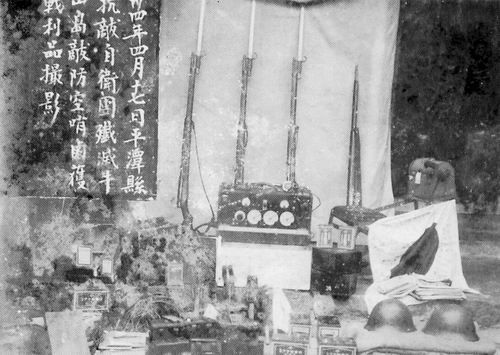 卅四年四月十七日平潭縣
抗敵自衛團殲滅牛
山島敵防空哨鹵獲
戰利品撮影